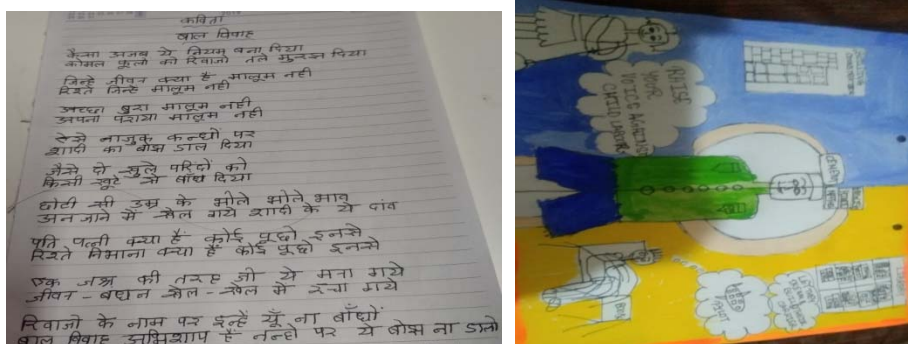 कविता
बाल विवाह
कैसा अजब ये नियम बना दिया
कोमल फूलो को रिवाजो तले मुरझा दिया
जिन्हे जीवन क्या है मालूम नही
रिश्ते जिन्हे मालूम नही
अच्छा बुरा मालूम नही
अपना पराया मालूम नही
ऐसे नाजुक कन्धो पर
शादी का बोझ डाल दिया
जैसे दो खुले परिंदों को
किसी खूटे से बांध दिया
छोटी सी उम्र के भोले भोले भाव
अनजाने मे खेल गये शादी के ये दांव
पति पत्नी क्या है कोई पूछो इनसे
रिश्ते निभाना क्या है कोई पूछो इनसे
एक जश्न की तरह जो ये मना गये
जीवन - बंधन खेल - खेल मे रचा गये
रिवाजो के नाम पर इन्हें यूँ ना बाँधों
बाल विवाह अभिशाप है नन्हो पर ये बोझ ना डालो
RAISE
YOUR
VOICE AGAINST
CHILD LABOUR